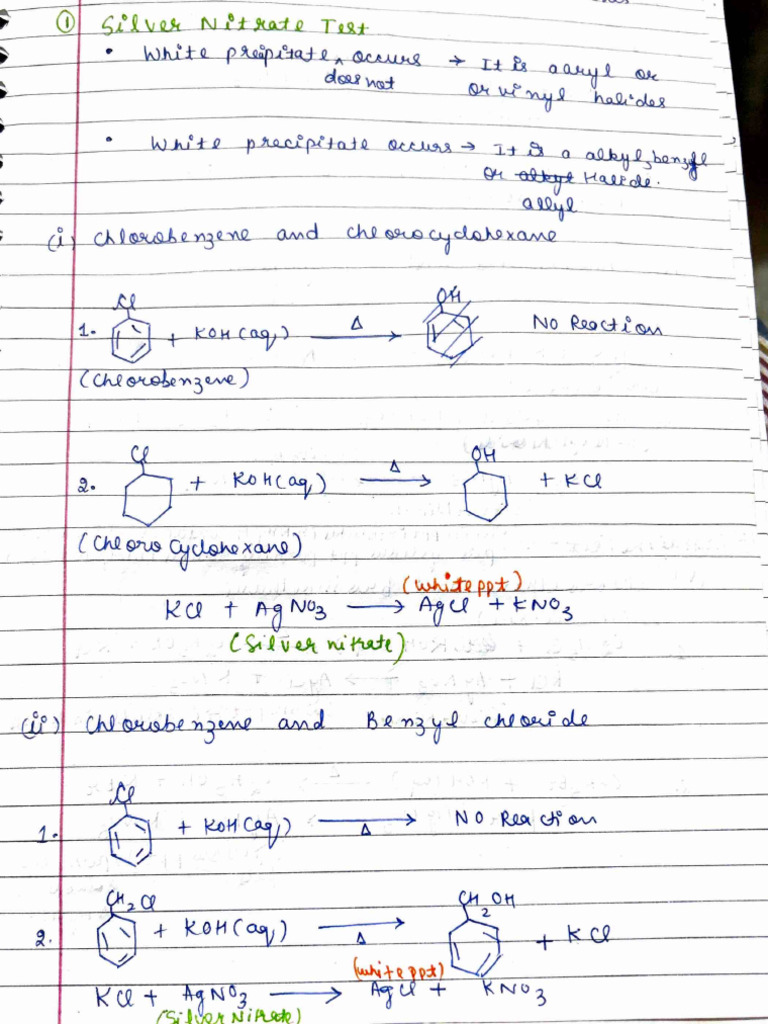 ① Silver Nitrate Test
• White precipitate does not occurs → It is a aryl or
or vinyl halides
• White precipitate occurs → It is a alkyl, benzyl
or Halide.
allyl
(i) Chlorobenzene and chlorocyclohexane
Cl OH
1. + KOH(aq) Δ → No Reaction
(Chlorobenzene)
Cl OH
2. + KOH(aq) Δ → + KCl
(Chloro Cyclohexane)
(white ppt)
KCl + AgNO3 → AgCl + KNO3
(Silver nitrate)
(ii) Chlorobenzene and Benzyl chloride
Cl
1. + KOH(aq) → Δ No Reaction
CH2Cl CH2OH
2. + KOH(aq) → Δ + KCl
(white ppt)
KCl + AgNO3 → AgCl + KNO3
(Silver Nitrate)